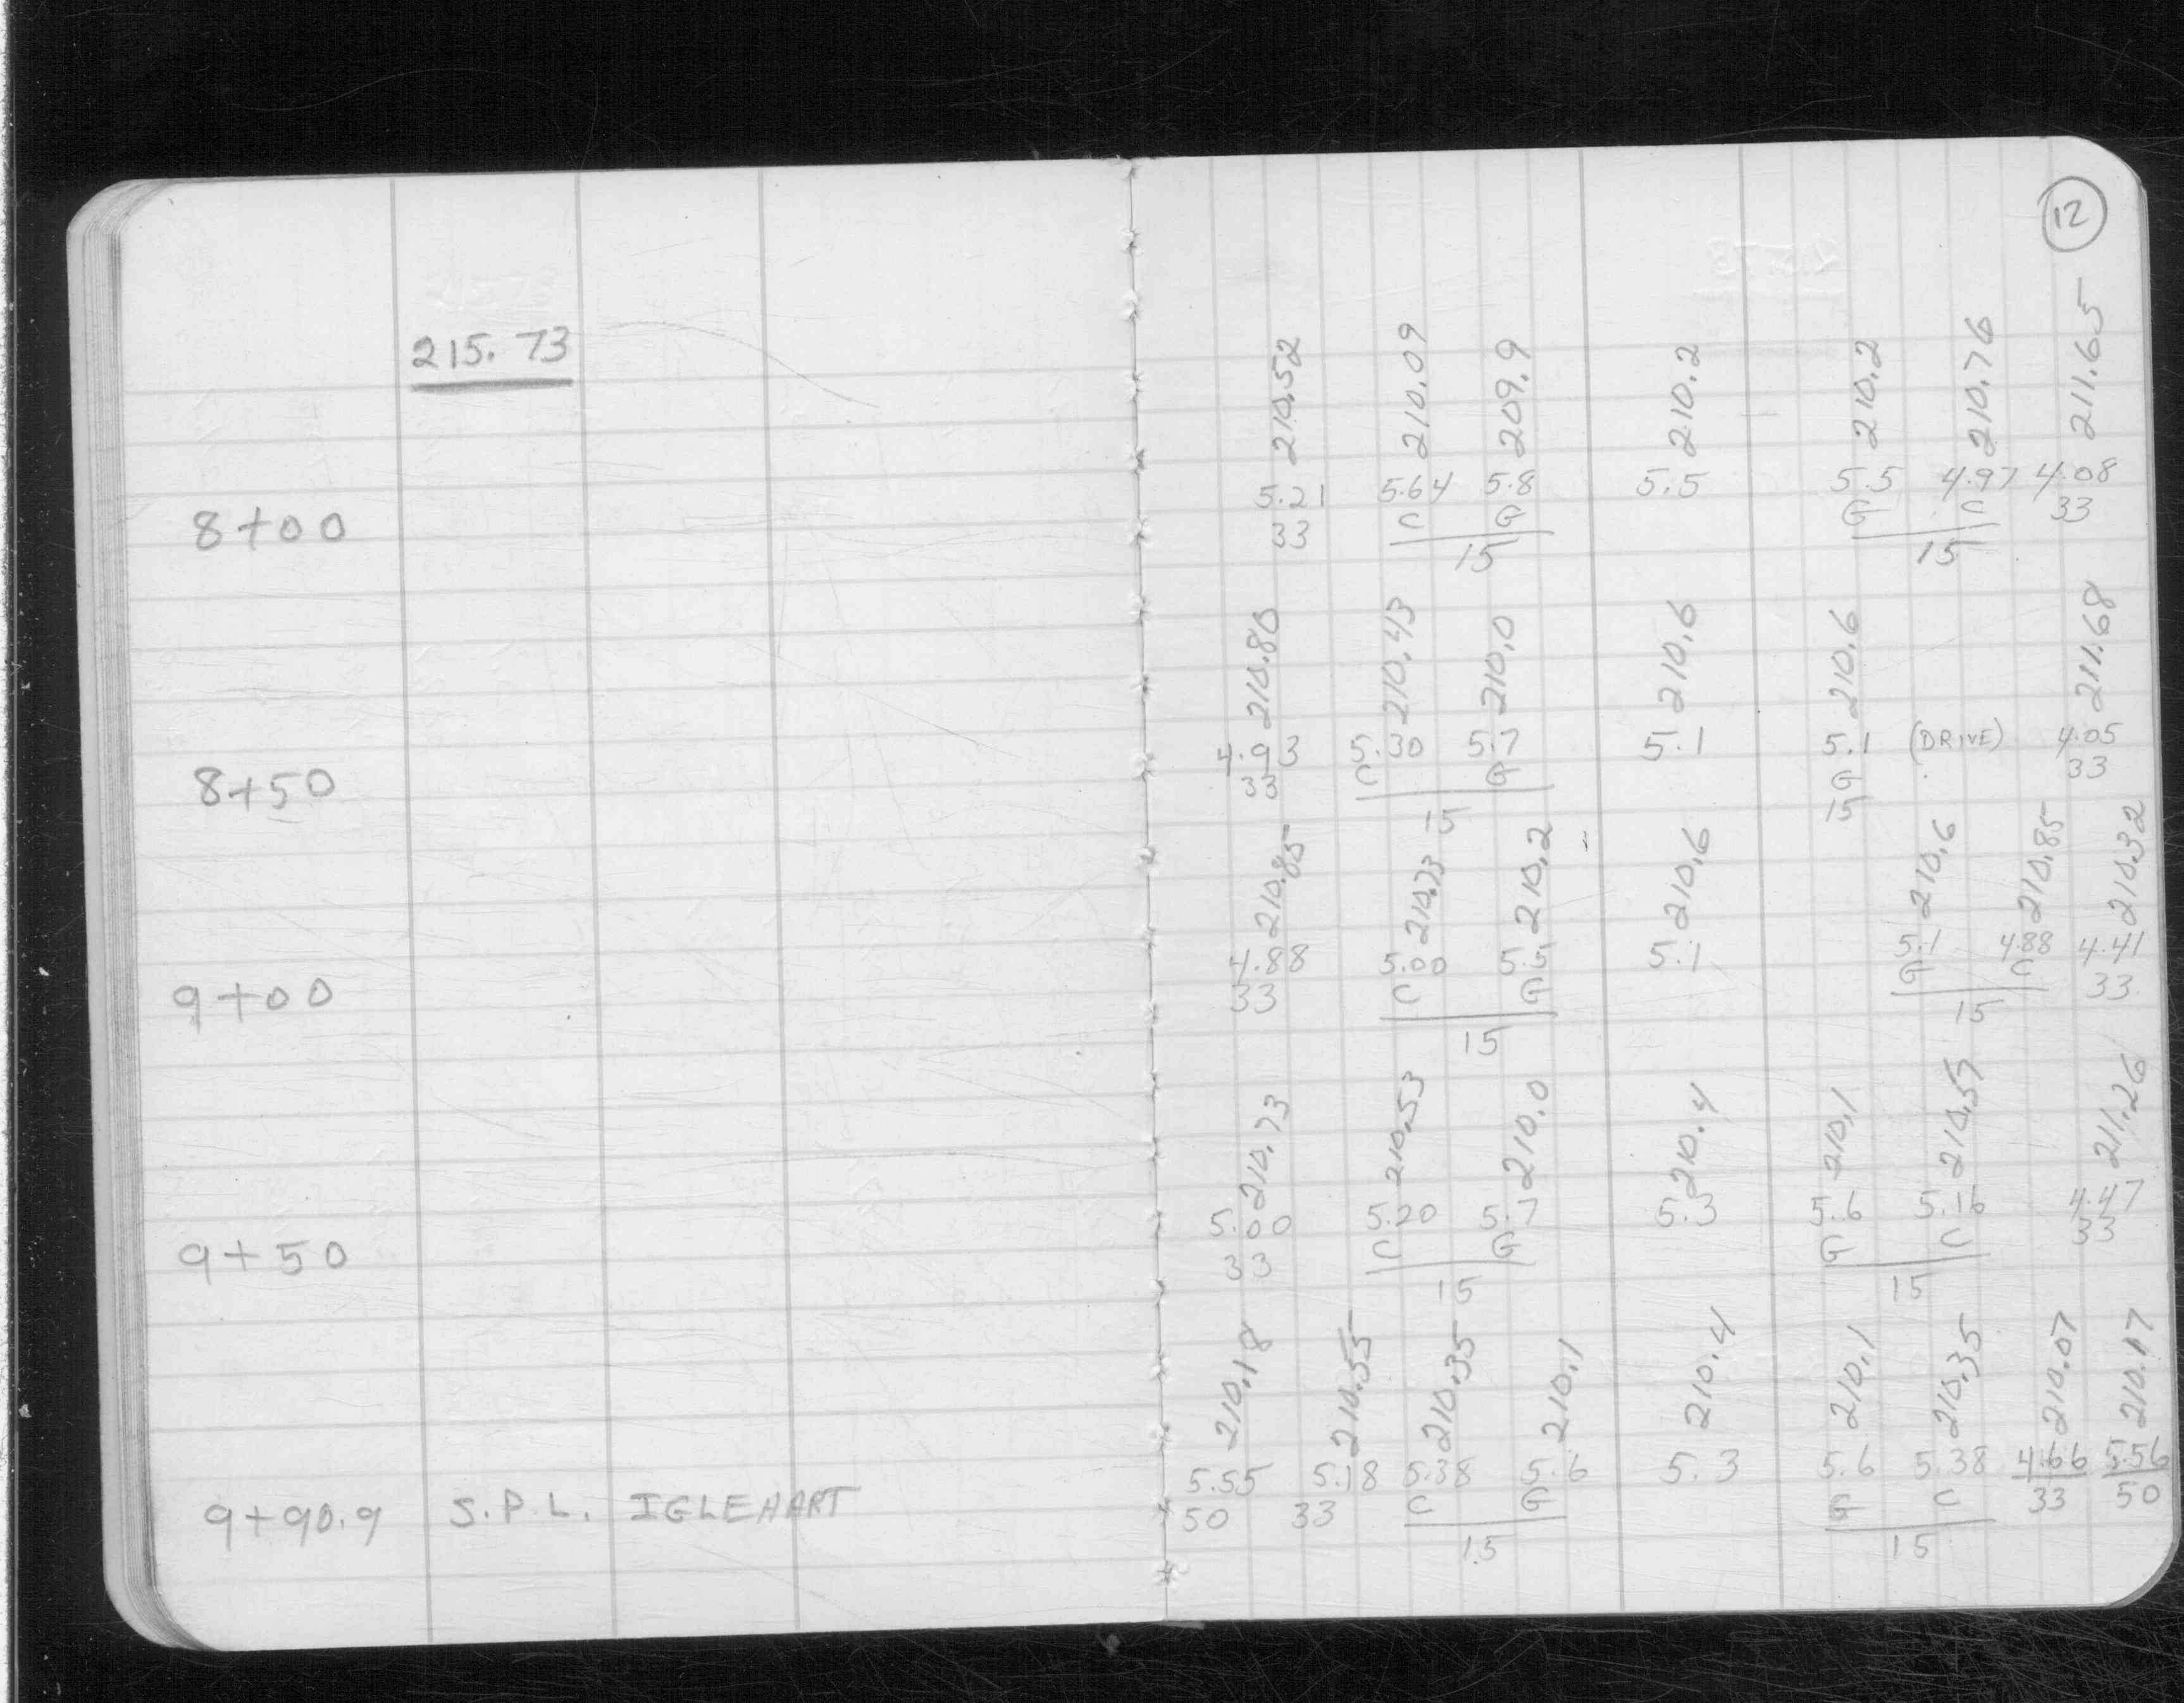 12
215.73
210.52 210.09 209.9 210.2 210.2 210.76 211.65
5.21 5.64 5.8 5.5 5.5 4.97 4.08
8+00 33 C G G C 33
15 15
210.80 210.43 210.0 210.6 210.6 211.68
4.93 5.30 5.7 5.1 5.1 (DRIVE) 4.05
8+50 33 C G G 33
15 15
210.85 210.73 210.2 210.6 210.6 210.85 210.32
4.88 5.00 5.5 5.1 5.1 4.88 4.41
9+00 33 C G G C 33
15 15
210.73 210.53 210.0 210.4 210.1 210.57 211.26
5.00 5.20 5.7 5.3 5.6 5.16 4.47
9+50 33 C G G C 33
15 15
210.18 210.55 210.35 210.1 210.4 210.1 210.35 210.07 210.17
5.55 5.18 5.38 5.6 5.3 5.6 5.38 4.66 5.56
9+90.9 S.P.L. IGLEHART 50 33 C G G C 33 50
15 15